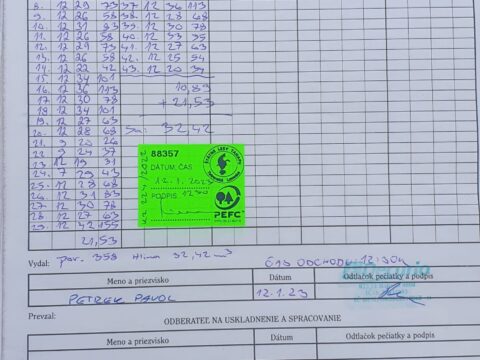 8. 12 29 73 37. 12 36 113
9. 12 26 58 38. 12 28 68
10. 12 31 83 39. 12 30 78
11. 12 26 58 40. 12 33 95
12. 12 29 73 41. 12 27 63
13. 12 26 58 42. 12 25 54
14. 12 22 42 43. 12 20 34
15. 12 34 101
16. 12 36 113 10,89
17. 12 30 78 + 21,53
18. 12 34 101
19. 12 27 63
20. 12 28 68 32,42
21. 9 20 26
22. 9 24 37
23. 12 19 31
24. 7 29 43
25. 12 28 68
26. 12 31 83
27. 12 30 78
28. 12 27 63
29. 12 42 155
21,53
88357
DÁTUM, ČAS
12.1.2023
PODPIS 1230
PEFC
Vydal: por. 358 32,42 m³ ČAS ODCHODU 12:30h
Meno a priezvisko Dátum Odtlačok pečiatky a podpis
PETREK PAVOL 12.1.23
Prevzal: ODBERATEĽ NA USKLADNENIE A SPRACOVANIE
Meno a priezvisko Dátum Odtlačok pečiatky a podpis